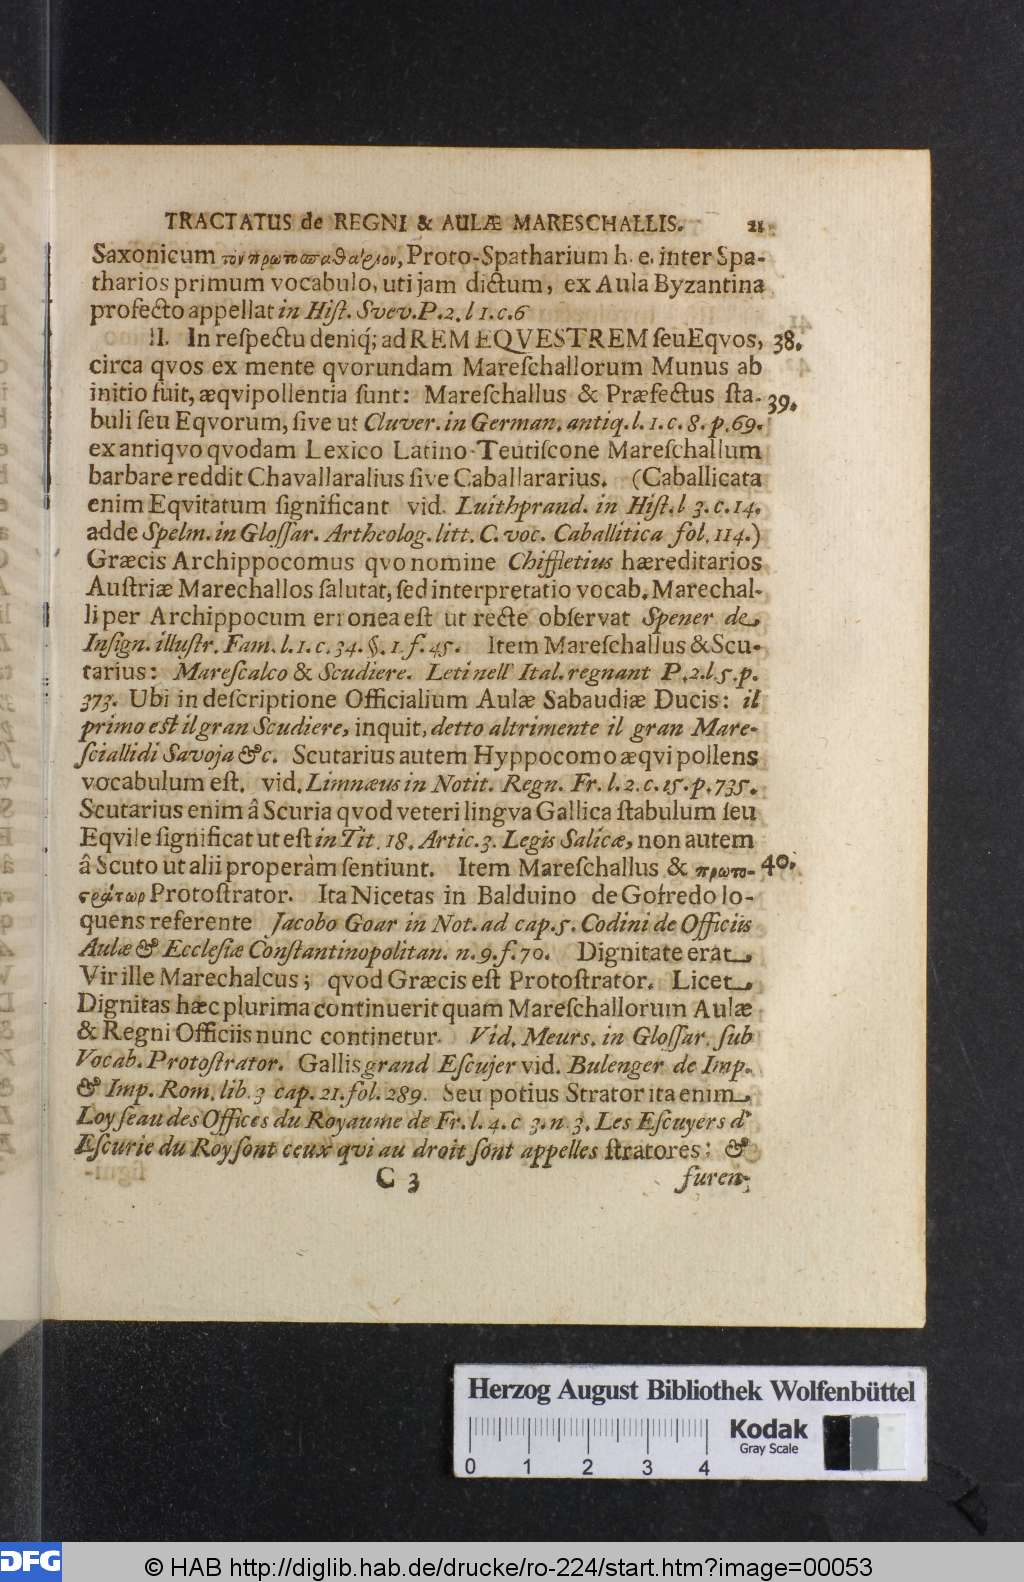 TRACTATUS de REGNI & AULÆ MARESCHALLIS. 21
Saxonicum τὸν πρωτοσπαθάριον, Proto-Spatharium h. e. inter Spa-
tharios primum vocabulo, uti jam dictum, ex Aula Byzantina
profecto appellat in Hiſt. Svev. P. 2. l 1. c. 6
II. In reſpectu deniq́; ad REM EQVESTREM ſeu Eqvos, 38.
circa qvos ex mente qvorundam Mareſchallorum Munus ab
initio fuit, æqvipollentia ſunt: Mareſchallus & Præfectus ſta- 39.
buli ſeu Eqvorum, ſive ut Cluver. in German. antiq. l. 1. c. 8. p. 69.
ex antiqvo qvodam Lexico Latino-Teutiſcone Mareſchallum
barbare reddit Chavallaralius ſive Caballararius. (Caballicata
enim Eqvitatum ſignificant vid. Luithprand. in Hiſt. l 3. c. 14.
adde Spelm. in Gloſſar. Artheolog. litt. C. voc. Caballitica fol. 114.)
Græcis Archippocomus qvo nomine Chiffletius hæreditarios
Auſtriæ Marechallos ſalutat, ſed interpretatio vocab. Marechal-
li per Archippocum erronea eſt ut recte obſervat Spener de
Inſign. illuſtr. Fam. l. 1. c. 34. §. 1. f. 45. Item Mareſchallus & Scu-
tarius: Mareſcalco & Scudiere. Leti nell' Ital. regnant P. 2. l. 5. p.
373. Ubi in deſcriptione Officialium Aulæ Sabaudiæ Ducis: il
primo eſt il gran Scudiere, inquit, detto altrimente il gran Mare-
ſciallidi Savoja &c. Scutarius autem Hyppocomo æqvi pollens
vocabulum eſt. vid. Limnæus in Notit. Regn. Fr. l. 2. c. 15. p. 735.
Scutarius enim â Scuria qvod veteri lingva Gallica ſtabulum ſeu
Eqvile ſignificat ut eſt in Tit. 18. Artic. 3. Legis Salicæ, non autem
â Scuto ut alii properàm ſentiunt. Item Mareſchallus & πρωτο- 40.
ϛράτωρ Protoſtrator. Ita Nicetas in Balduino de Gofredo lo-
quens referente Jacobo Goar in Not. ad cap. 5. Codini de Officiis
Aulæ & Eccleſiæ Conſtantinopolitan. n. 9. f. 70. Dignitate erat
Vir ille Marechalcus; qvod Græcis eſt Protoſtrator. Licet
Dignitas hæc plurima continuerit quam Mareſchallorum Aulæ
& Regni Officiis nunc continetur. Vid. Meurs. in Gloſſar. ſub
Vocab. Protoſtrator. Gallis grand Eſcujer vid. Bulenger de Imp.
& Imp. Rom. lib. 3 cap. 21. fol. 289. Seu potius Strator ita enim
Loyſeau des Offices du Royaume de Fr. l. 4. c 3. n 3. Les Eſcuyers d'
Eſcurie du Roy ſont ceux qvi au droit ſont appelles ſtratores: &
C 3 furen-
Herzog August Bibliothek Wolfenbüttel
Kodak
Gray Scale
0 1 2 3 4
DFG © HAB http://diglib.hab.de/drucke/ro-224/start.htm?image=00053